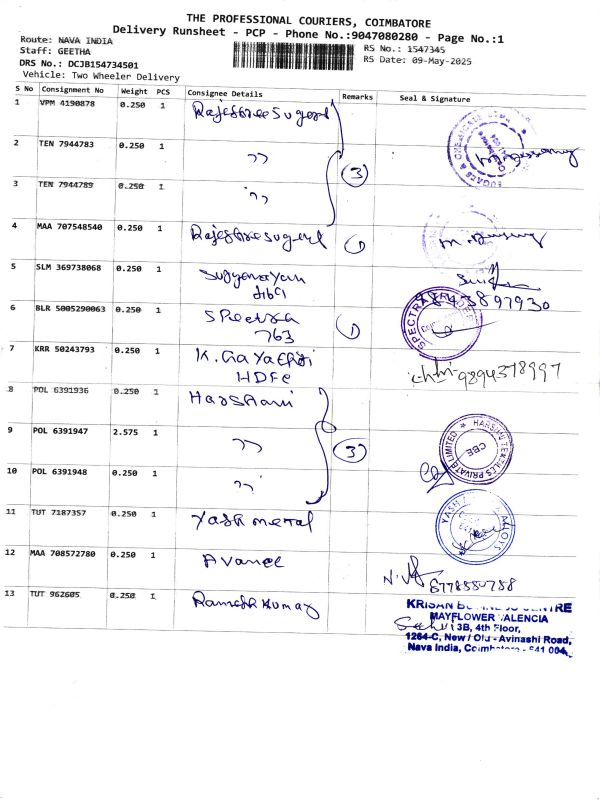 THE PROFESSIONAL COURIERS, COIMBATORE
Delivery Runsheet - PCP - Phone No.:9047080280 - Page No.:1
Route: NAVA INDIA
Staff: GEETHA
DRS No.: DCJB154734501
Vehicle: Two Wheeler Delivery
RS No.: 1547345
RS Date: 09-May-2025
S No Consignment No Weight PCS Consignee Details Remarks Seal & Signature
1 VPM 4190878 0.250 1 Rajeshree Sugeral
2 TEN 7944783 0.250 1 ,,
3 TEN 7944789 0.250 1 ,,
(3)
4 MAA 707548540 0.250 1 Rajeshree Sugeral (1)
5 SLM 369738068 0.250 1
9843897930
6 BLR 5005290063 0.250 1 Spectra (1)
763
SPECTRA
7 KRR 50243793 0.250 1 K. Gayathiri
HDFC
9894378997
8 POL 6391936 0.250 1 Harshani
9 POL 6391947 2.575 1 ,,
10 POL 6391948 0.250 1 ,,
(3)
HARSHNI TEXTILES PRIVATE LIMITED
CBE
11 TUT 7187357 0.250 1 Yash metal
12 MAA 708572780 0.250 1 Avanee
13 TUT 962605 0.250 1 Ramesh Kumar
KRISAN
MAYFLOWER VALENCIA
3B, 4th Floor,
1264-C, New / Old - Avinashi Road,
Nava India, Coimbatore - 641 004.